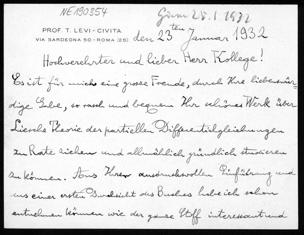 NE190354
Gönn 28.I.1932
PROF. T. LEVI-CIVITA
VIA SARDEGNA 50 - ROMA (25)
den 23ten Januar 1932
Hochverehrter und lieber Herr Kollege!
Es ist für mich eine grosse Freude, durch Ihre liebenswür-
dige Gabe, so rasch und bequem Ihr schönes Werk über
Lie'sche Theorie der partiellen Differentialgleichungen
zu Rate ziehen und allmählich gründlich studieren
zu können. Aus Ihrer ausdrucksvollen Einführung und
aus einer ersten Durchsicht des Buches habe ich schon
entnehmen können wie der ganze Stoff interessant und